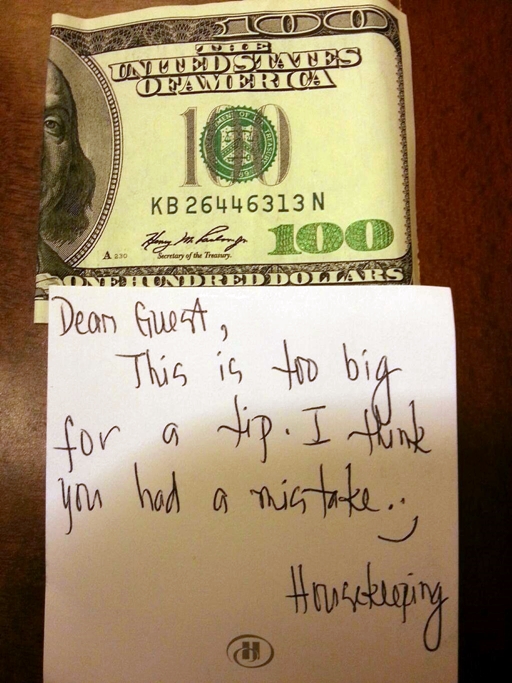 100
THE
UNITED STATES
OF AMERICA
100
KB 26446313 N
Secretary of the Treasury.
A
100
ONE HUNDRED DOLLARS
Dear Guest,
This is too big
for a tip. I think
you had a mistake.
Housekeeping
H